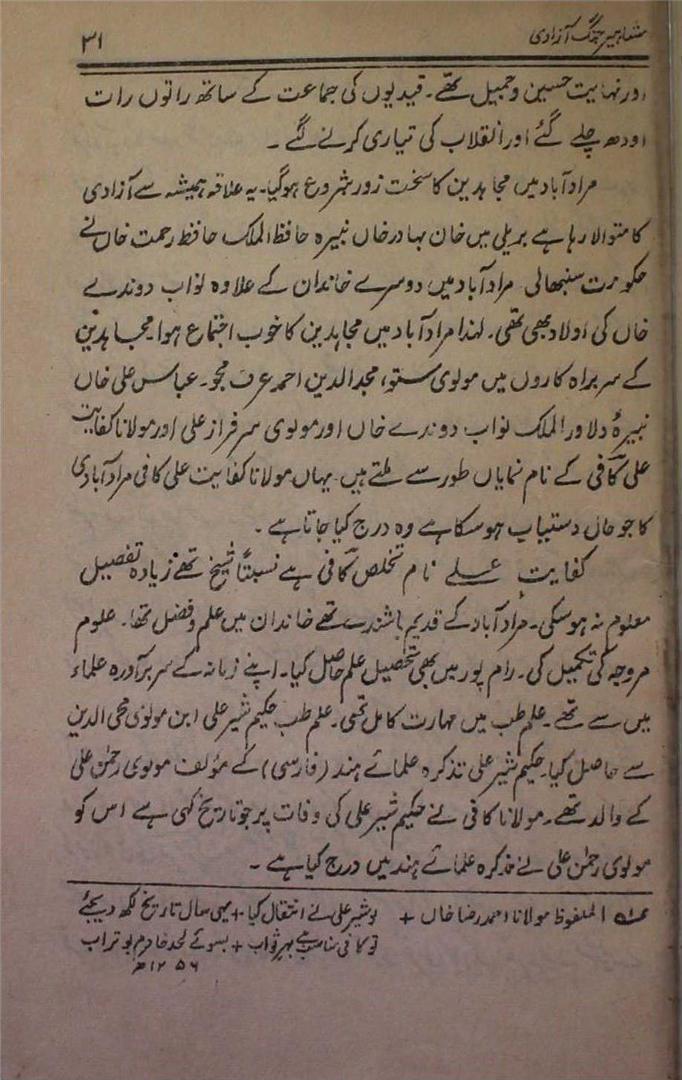 مشاہیر جنگ آزادی
۳۱
اور نہایت حسین و جمیل تھے۔ قیدیوں کی جماعت کے ساتھ راتوں رات
اودھ چلے گئے اور انقلاب کی تیاری کرنے لگے ۔
مراد آباد میں مجاہدین کا سخت زور شروع ہوگیا۔ یہ علاقہ ہمیشہ سے آزادی
کا متوالا رہا ہے بریلی میں خان بہادر خاں نبیرہ حافظ الملک حافظ رحمت خاں نے
حکومت سنبھالی مراد آباد میں دوسرے خاندان کے علاوہ نواب دوندے
خاں کی اولاد بھی تھی۔ لہذا مراد آباد میں مجاہدین کا خوب اجتماع ہوا۔ مجاہدین
کے سربراہ کاروں میں مولوی ستو، مجد الدین احمد عرف مجو۔ عباس علی خاں
نبیرۂ دلاور الملک نواب دوندے خاں اور مولوی سرفراز علی اور مولانا کفایت
علی کافی کے نام نمایاں طور سے ملتے ہیں۔ یہاں مولانا کفایت علی کافی مراد آبادی
کا جو حال دستیاب ہو سکا ہے وہ درج کیا جاتا ہے ۔
کفایت علی نام تخلص کافی ہے نسبتاً شیخ تھے زیادہ تفصیل
معلوم نہ ہو سکی۔ مراد آباد کے قدیم باشندے تھے خاندان میں علم و فضل تھا۔ علوم
مروجہ کی تکمیل کی۔ رام پور میں بھی تحصیل علم حاصل کیا۔ اپنے زمانہ کے سربرآوردہ علماء
میں سے تھے۔ علم طب میں مہارت کامل تھی۔ علم طب حکیم شیر علی ابن مولوی محی الدین
سے حاصل کیا۔ حکیم شیر علی تذکرہ علمائے ہند (فارسی) کے مؤلف مولوی رحمٰن علی
کے والد تھے۔ مولانا کافی نے حکیم شیر علی کی وفات پر جو تاریخ کہی ہے اس کو
مولوی رحمٰن علی نے تذکرہ علمائے ہند میں درج کیا ہے ۔
الملفوظ مولانا احمد رضا خاں + چو شیر علی نے انتقال کیا + یہی سال تاریخ لکھ دیجئے
تو کافی مناسب ہے بہر ثواب + بسوئے لحد خادم بوتراب
۱۲۵۶ھ